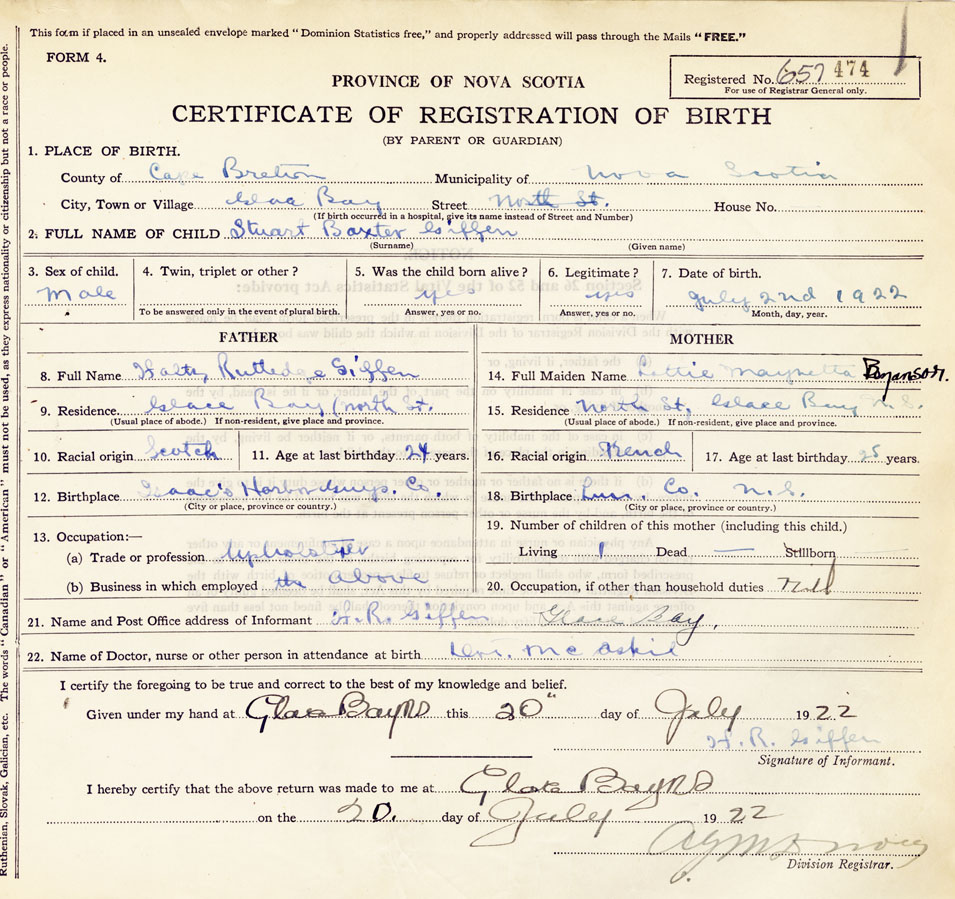 This form if placed in an unsealed envelope marked "Dominion Statistics free," and properly addressed will pass through the Mails "FREE."
FORM 4.
PROVINCE OF NOVA SCOTIA
Registered No. 657 474
For use of Registrar General only.
CERTIFICATE OF REGISTRATION OF BIRTH
(BY PARENT OR GUARDIAN)
1. PLACE OF BIRTH.
County of Cape Breton Municipality of Nova Scotia
City, Town or Village Glace Bay Street North St. House No.
(If birth occurred in a hospital, give its name instead of Street and Number)
2. FULL NAME OF CHILD Stuart Baxter Giffen
(Surname) (Given name)
3. Sex of child. 4. Twin, triplet or other? 5. Was the child born alive? 6. Legitimate? 7. Date of birth.
Male yes yes July 2nd 1922
To be answered only in the event of plural birth. Answer, yes or no. Answer, yes or no. Month, day, year.
FATHER MOTHER
8. Full Name Rutledge Giffen 14. Full Maiden Name Lottie
9. Residence Glace Bay (North St. 15. Residence North St, Glace Bay N.S.
(Usual place of abode.) If non-resident, give place and province. (Usual place of abode.) If non-resident, give place and province.
10. Racial origin Scotch 11. Age at last birthday 24 years. 16. Racial origin French 17. Age at last birthday 25 years.
12. Birthplace Isaac's Harbor Guys. Co. 18. Birthplace Lun. Co. N.S.
(City or place, province or country.) (City or place, province or country.)
13. Occupation:— 19. Number of children of this mother (including this child.)
(a) Trade or profession Upholsterer Living 1 Dead — Stillborn
(b) Business in which employed the above 20. Occupation, if other than household duties
21. Name and Post Office address of Informant H. R. Giffen Glace Bay,
22. Name of Doctor, nurse or other person in attendance at birth Mc Askil
I certify the foregoing to be true and correct to the best of my knowledge and belief.
Given under my hand at Glace Bay NS this 20" day of July 1922
H. R. Giffen
Signature of Informant.
I hereby certify that the above return was made to me at Glace Bay NS
on the 20. day of July 1922
Division Registrar.
Ruthenian, Slovak, Galician, etc. The words "Canadian" or "American" must not be used, as they express nationality or citizenship but not a race or people.